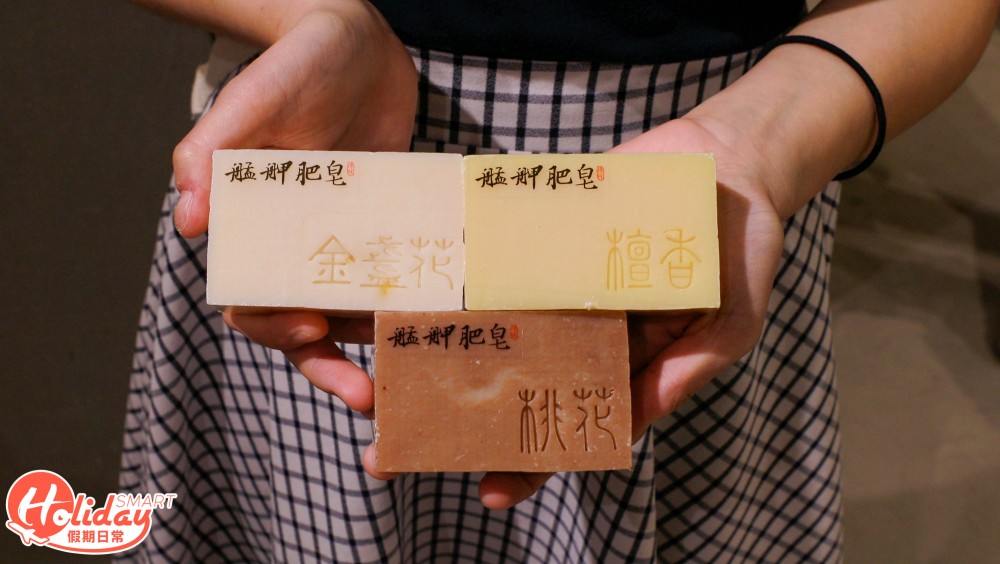 艋舺肥皂
金盞花
艋舺肥皂
檀香
艋舺肥皂
桃花
Holiday
SMART
假期日常